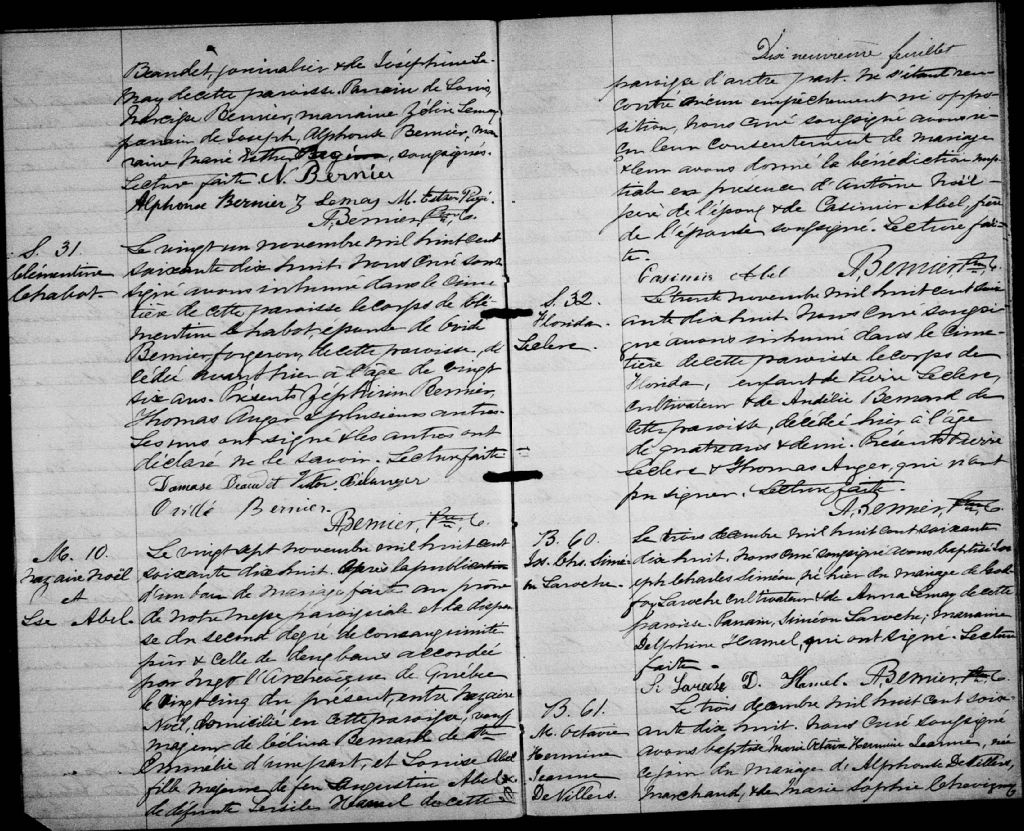 Beaudet, journalier & de Joséphine Le-
may de cette paroisse. Parrain de Louis,
Narcisse Bernier, marraine Zélire Lemay
parrain de Joseph, Alphonse Bernier, ma
raine Marie Esther, soussignés.
Lecture faite N. Bernier
Alphonse Bernier Z Lemay M. Esther Pagé.
A. Bernier, Ptre C.
S. 31.
Clémentine
Chabot.
Le vingt un novembre mil huit cent
soixante dix huit. Nous curé sous
signé avons inhumé dans le cime
tière de cette paroisse le corps de Clé
mentine Chabot, épouse de Ovide
Bernier, forgeron, de cette paroisse, dé
cédée avant hier à l'âge de vingt
six ans. Présents Zéphirin Bernier,
Thomas Auger & plusieurs autres.
Les uns ont signé & les autres ont
déclaré ne le savoir. Lecture faite
Damase Beaudet Victor Bélanger
Bernier.
A Bernier, Ptre, C.
M. 10.
Nazaire Noël
&
Lse Abel.
Le vingt sept novembre mil huit cent
soixante dix huit. Après la publication
d'un ban de mariage faite au prône
de notre messe paroissiale et la dispen
se du second degré de consanguinité
pur & celle de deux bans accordée
par Mgr l'Archevêque de Québec
le vingt cinq du présent, entre Nazaire
Noël, domicilié en cette paroisse, veuf
majeur de Célina Bernard de Ste
Emmélie d'une part, et Louise Abel
fille majeure de feu Augustin Abel &
de défunte Cécile Hamel de cette
Dix neuvième feuillet
paroisse d'autre part. Ne s'étant ren-
contré aucun empêchement ni oppo
sition, Nous curé soussigné avons re
çu leur consentement de mariage
& leur avons donné la bénédiction nup
tiale en présence d'Antoine Noël
père de l'époux & de Casimir Abel, frère
de l'épouse soussigné. Lecture fai
te.
Casimir Abel A Bernier Ptre, C.
S. 32.
Florida
Leclerc.
Le trente novembre mil huit cent soix
ante dix huit. Nous curé soussi
gné avons inhumé dans le cime
tière de cette paroisse le corps de
Florida, enfant de Pierre Leclerc,
cultivateur & de Andélie Bernard de
cette paroisse, décédée hier à l'âge
de quatre ans & demi. Présents Pierre
Leclerc & Thomas Auger, qui n'ont
pu signer. Lecture faite.
A. Bernier, Ptre C.
B. 60.
Jos. Chs. Simé-
on Laroche.
Le trois décembre mil huit cent soixante
dix huit. Nous curé soussigné avons baptisé Jos
eph Charles Siméon, né hier du mariage de God
froy Laroche cultivateur & de Anna Lemay de cette
paroisse. Parrain, Siméon Laroche, marraine
Delphine Hamel, qui ont signé. Lecture
faite.
S. Laroche D. Hamel. A. Bernier, Ptre C.
B. 61.
M. Octavie
Hermine
Jeanne
De Villers.
Le trois décembre mil huit cent soix
ante dix huit. Nous curé soussigné
avons baptisé Marie Octavie Hermine Jeanne, née
ce jour du mariage d'Alphonse De Villers,
marchand, & de Marie Sophie